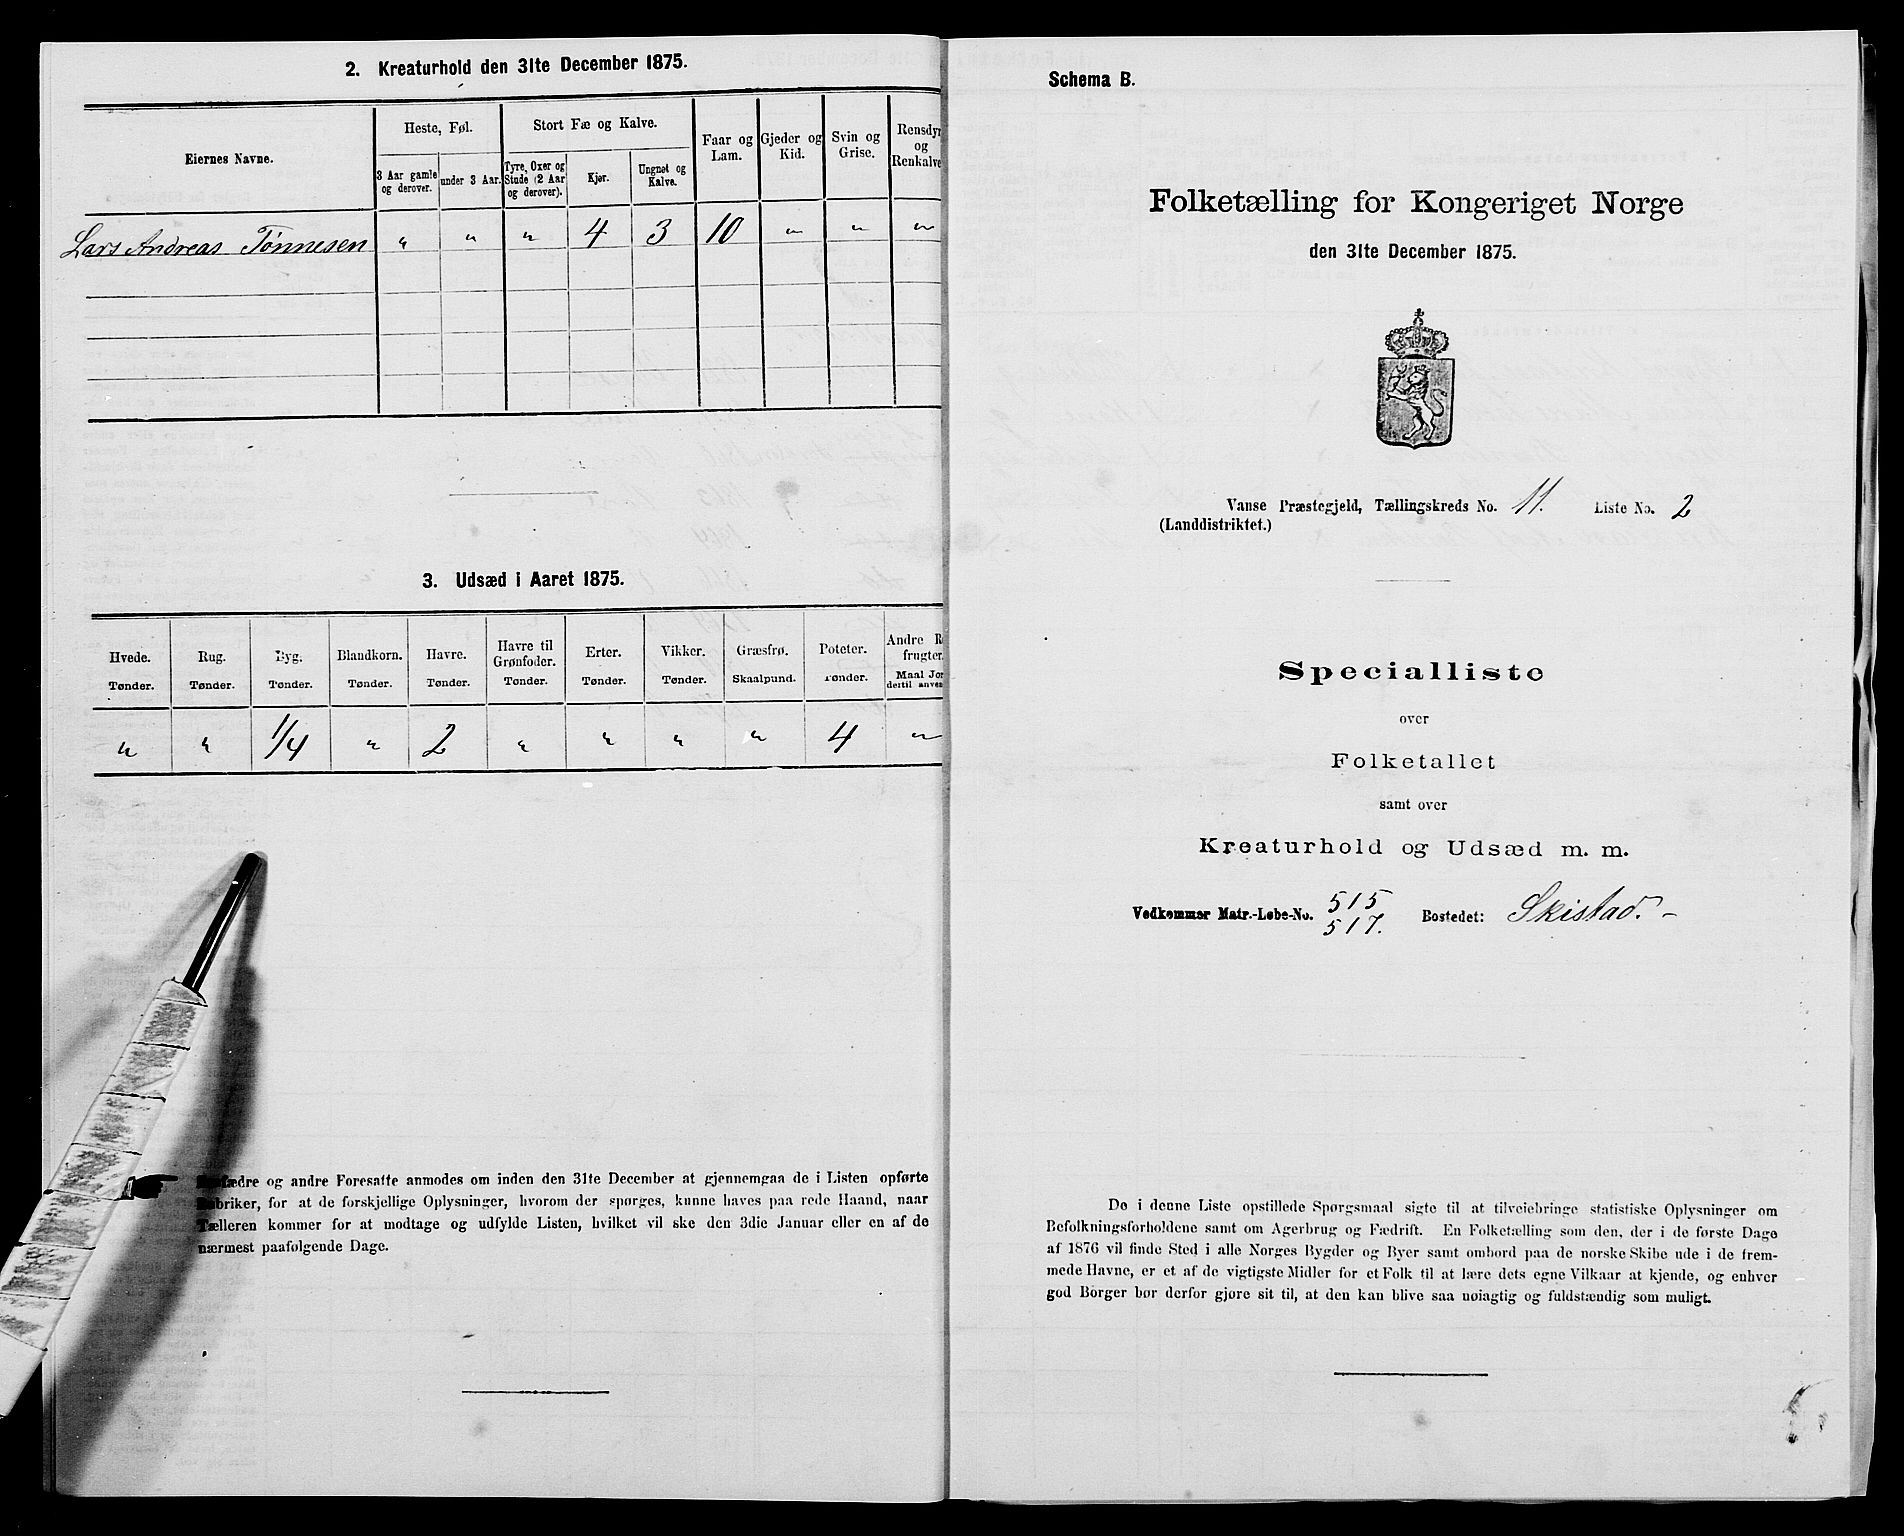 2. Kreaturhold den 31te December 1875.
Eiernes Navne.
Heste, Føl.
Stort Fæ og Kalve.
Faar og Lam.
Gjeder og Kid.
Svin og Grise.
Rensdyr og Renkalve
3 Aar gamle og derover.
under 3 Aar.
Tyre, Oxer og Stude (2 Aar og derover).
Kjør.
Ungnøt og Kalve.
Lars Andreas Tønnesen " " " 4 3 10 " " "
3. Udsæd i Aaret 1875.
Hvede. Rug. Byg. Blandkorn. Havre. Havre til Grønfoder. Erter. Vikker. Græsfrø. Poteter. Andre R frugter
Tønder. Tønder. Tønder. Tønder. Tønder. Tønder. Tønder. Tønder. Skaalpund. Tønder. Maal Jor dertil anven
" " 1/4 " 2 " " " " 4 "
fædre og andre Foresatte anmodes om inden den 31te December at gjennemgaa de i Listen opførte
Rubriker, for at de forskjellige Oplysninger, hvorom der spørges, kunne haves paa rede Haand, naar
Tælleren kommer for at modtage og udfylde Listen, hvilket vil ske den 3die Januar eller en af de
nærmest paafølgende Dage.
Schema B.
Folketælling for Kongeriget Norge
den 31te December 1875.
Vanse Præstegjeld, Tællingskreds No. 11. Liste No. 2
(Landdistriktet.)
Specialliste
over
Folketallet
samt over
Kreaturhold og Udsæd m. m.
Vedkommer Matr.-Løbe-No. 515 517. Bostedet: Skistad. -
De i denne Liste opstillede Spørgsmaal sigte til at tilveiebringe statistiske Oplysninger om
Befolkningsforholdene samt om Agerbrug og Fædrift. En Folketælling som den, der i de første Dage
af 1876 vil finde Sted i alle Norges Bygder og Byer samt ombord paa de norske Skibe ude i de frem-
mede Havne, er et af de vigtigste Midler for et Folk til at lære dets egne Vilkaar at kjende, og enhver
god Borger bør derfor gjøre sit til, at den kan blive saa nøiagtig og fuldstændig som muligt.